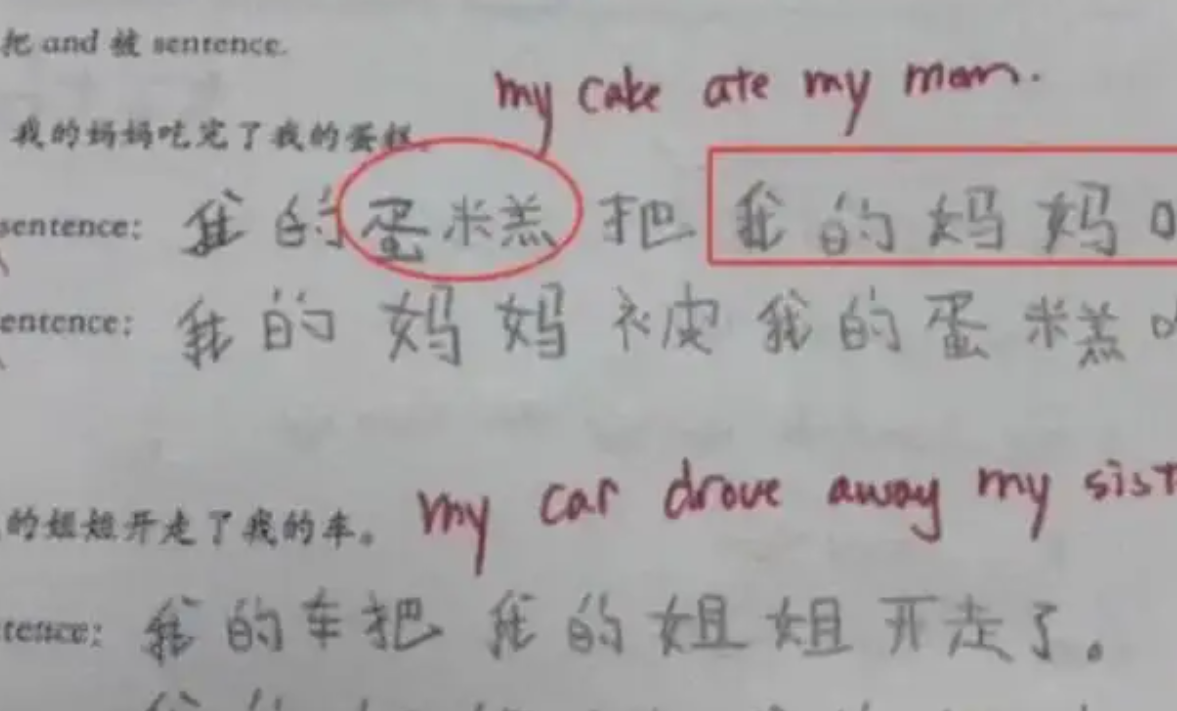 把 and 被 sentence.
my cake ate my mom.
我的妈妈吃完了我的蛋糕。
sentence: 我的蛋糕把我的妈妈
entence: 我的妈妈被我的蛋糕
my car drove away my sist
的姐姐开走了我的车。
tence: 我的车把我的姐姐开走了。